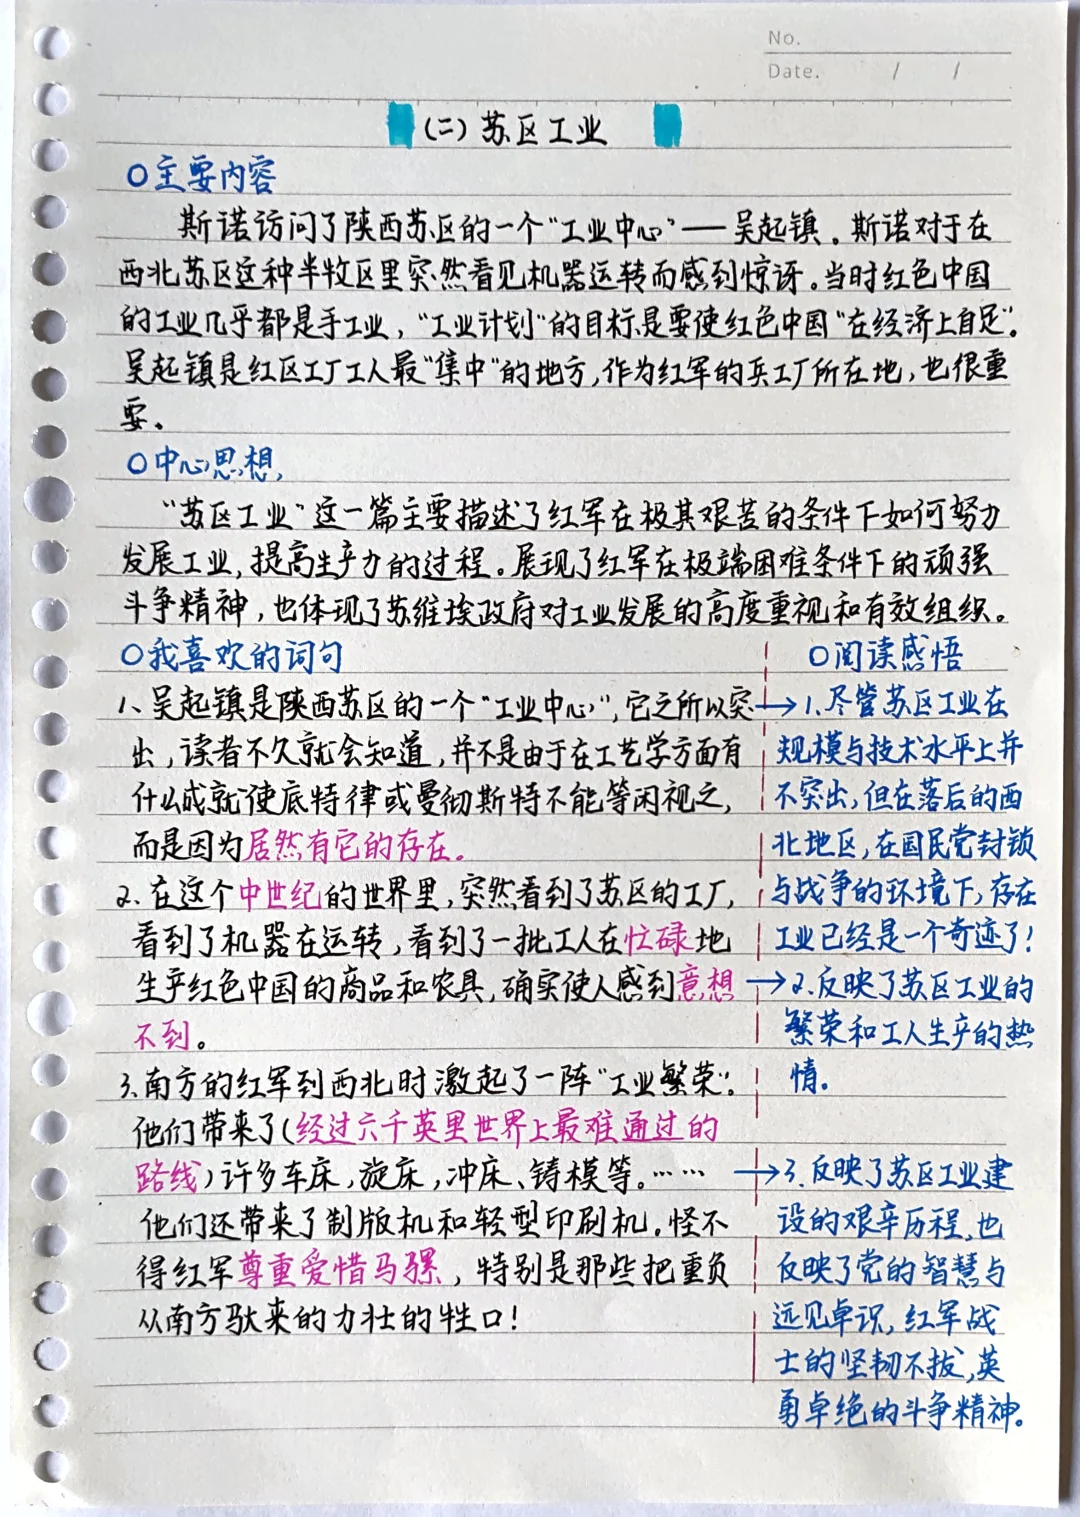 No.
Date. / /
(二) 苏区工业
○主要内容
斯诺访问了陕西苏区的一个“工业中心”——吴起镇。斯诺对于在
西北苏区这种半牧区里突然看见机器运转而感到惊讶。当时红色中国
的工业几乎都是手工业，“工业计划”的目标是要使红色中国“在经济上自足”。
吴起镇是红区工厂工人最“集中”的地方，作为红军的兵工厂所在地，也很重
要。
○中心思想
“苏区工业”这一篇主要描述了红军在极其艰苦的条件下如何努力
发展工业，提高生产力的过程。展现了红军在极端困难条件下的顽强
斗争精神，也体现了苏维埃政府对工业发展的高度重视和有效组织。
○我喜欢的词句
1、吴起镇是陕西苏区的一个“工业中心”，它之所以突
出，读者不久就会知道，并不是由于在工艺学方面有
什么成就使底特律或曼彻斯特不能等闲视之，
而是因为居然有它的存在。
2、在这个中世纪的世界里，突然看到了苏区的工厂，
看到了机器在运转，看到了一批工人在忙碌地
生产红色中国的商品和农具，确实使人感到意想
不到。
3.南方的红军到西北时激起了一阵“工业繁荣”。
他们带来了（经过六千英里世界上最难通过的
路线）许多车床，旋床，冲床、铸模等。……
他们还带来了制版机和轻型印刷机。怪不
得红军尊重爱惜马骡，特别是那些把重负
从南方驮来的力壮的牲口！
○阅读感悟
→1.尽管苏区工业在
规模与技术水平上并
不突出，但在落后的西
北地区，在国民党封锁
与战争的环境下，存在
工业已经是一个奇迹了！
→2.反映了苏区工业的
繁荣和工人生产的热
情。
→3.反映了苏区工业建
设的艰辛历程，也
反映了党的智慧与
远见卓识，红军战
士的坚韧不拔，英
勇卓绝的斗争精神。